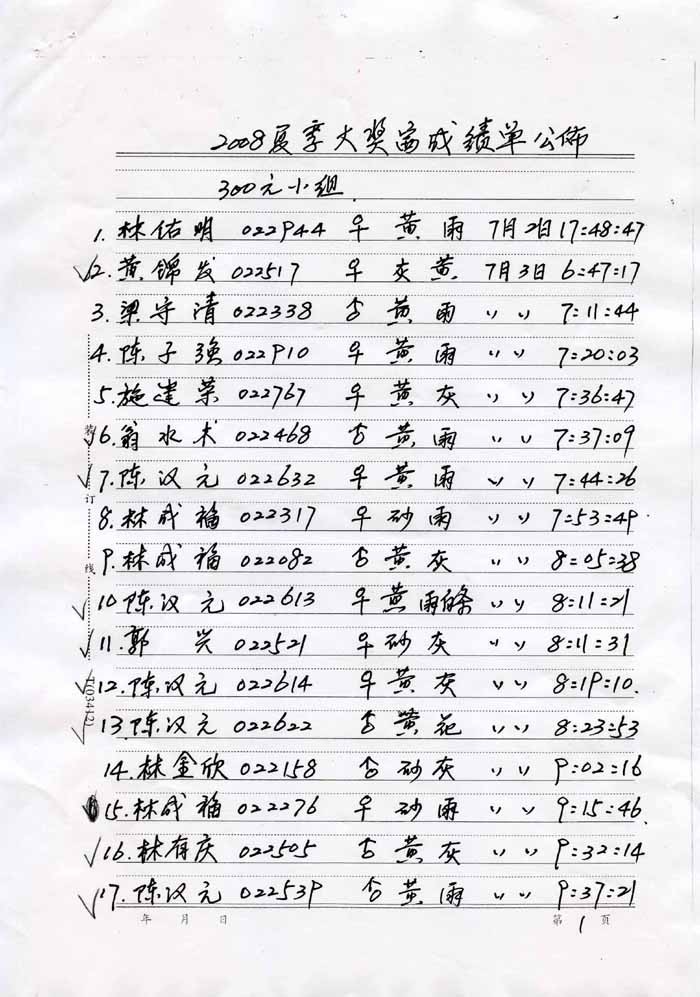 2008夏季大奖赛成绩单公佈
300元小组
1. 林佑明 022944 早 黄 雨 7月2日 17:48:47
✓2. 黄锦发 022517 早 灰 黄 7月3日 6:47:17
3. 梁守清 022338 否 黄 雨 〃 〃 7:11:44
4. 陈子强 022910 早 黄 雨 〃 〃 7:20:03
5. 施建荣 022767 早 黄 灰 〃 〃 7:36:47
✓6. 翁水术 022468 否 黄 雨 〃 〃 7:37:09
✓7. 陈汉元 022632 早 黄 雨 〃 〃 7:44:26
8. 林成福 022317 早 砂 雨 〃 〃 7:53:49
9. 林成福 022082 否 黄 灰 〃 〃 8:05:38
✓10. 陈汉元 022613 早 黄 雨條 〃 〃 8:11:21
✓11. 郭 兴 022521 早 砂 灰 〃 〃 8:11:31
✓12. 陈汉元 022614 早 黄 灰 〃 〃 8:19:10
✓13. 陈汉元 022622 否 黄 花 〃 〃 8:23:53
14. 林金欣 022158 否 砂 灰 〃 〃 9:02:16
15. 林成福 022276 早 砂 雨 〃 〃 9:15:46
✓16. 林有庆 022505 否 黄 灰 〃 〃 9:32:14
✓17. 陈汉元 022539 否 黄 雨 〃 〃 9:37:21
年 月 日 第1页
装订线